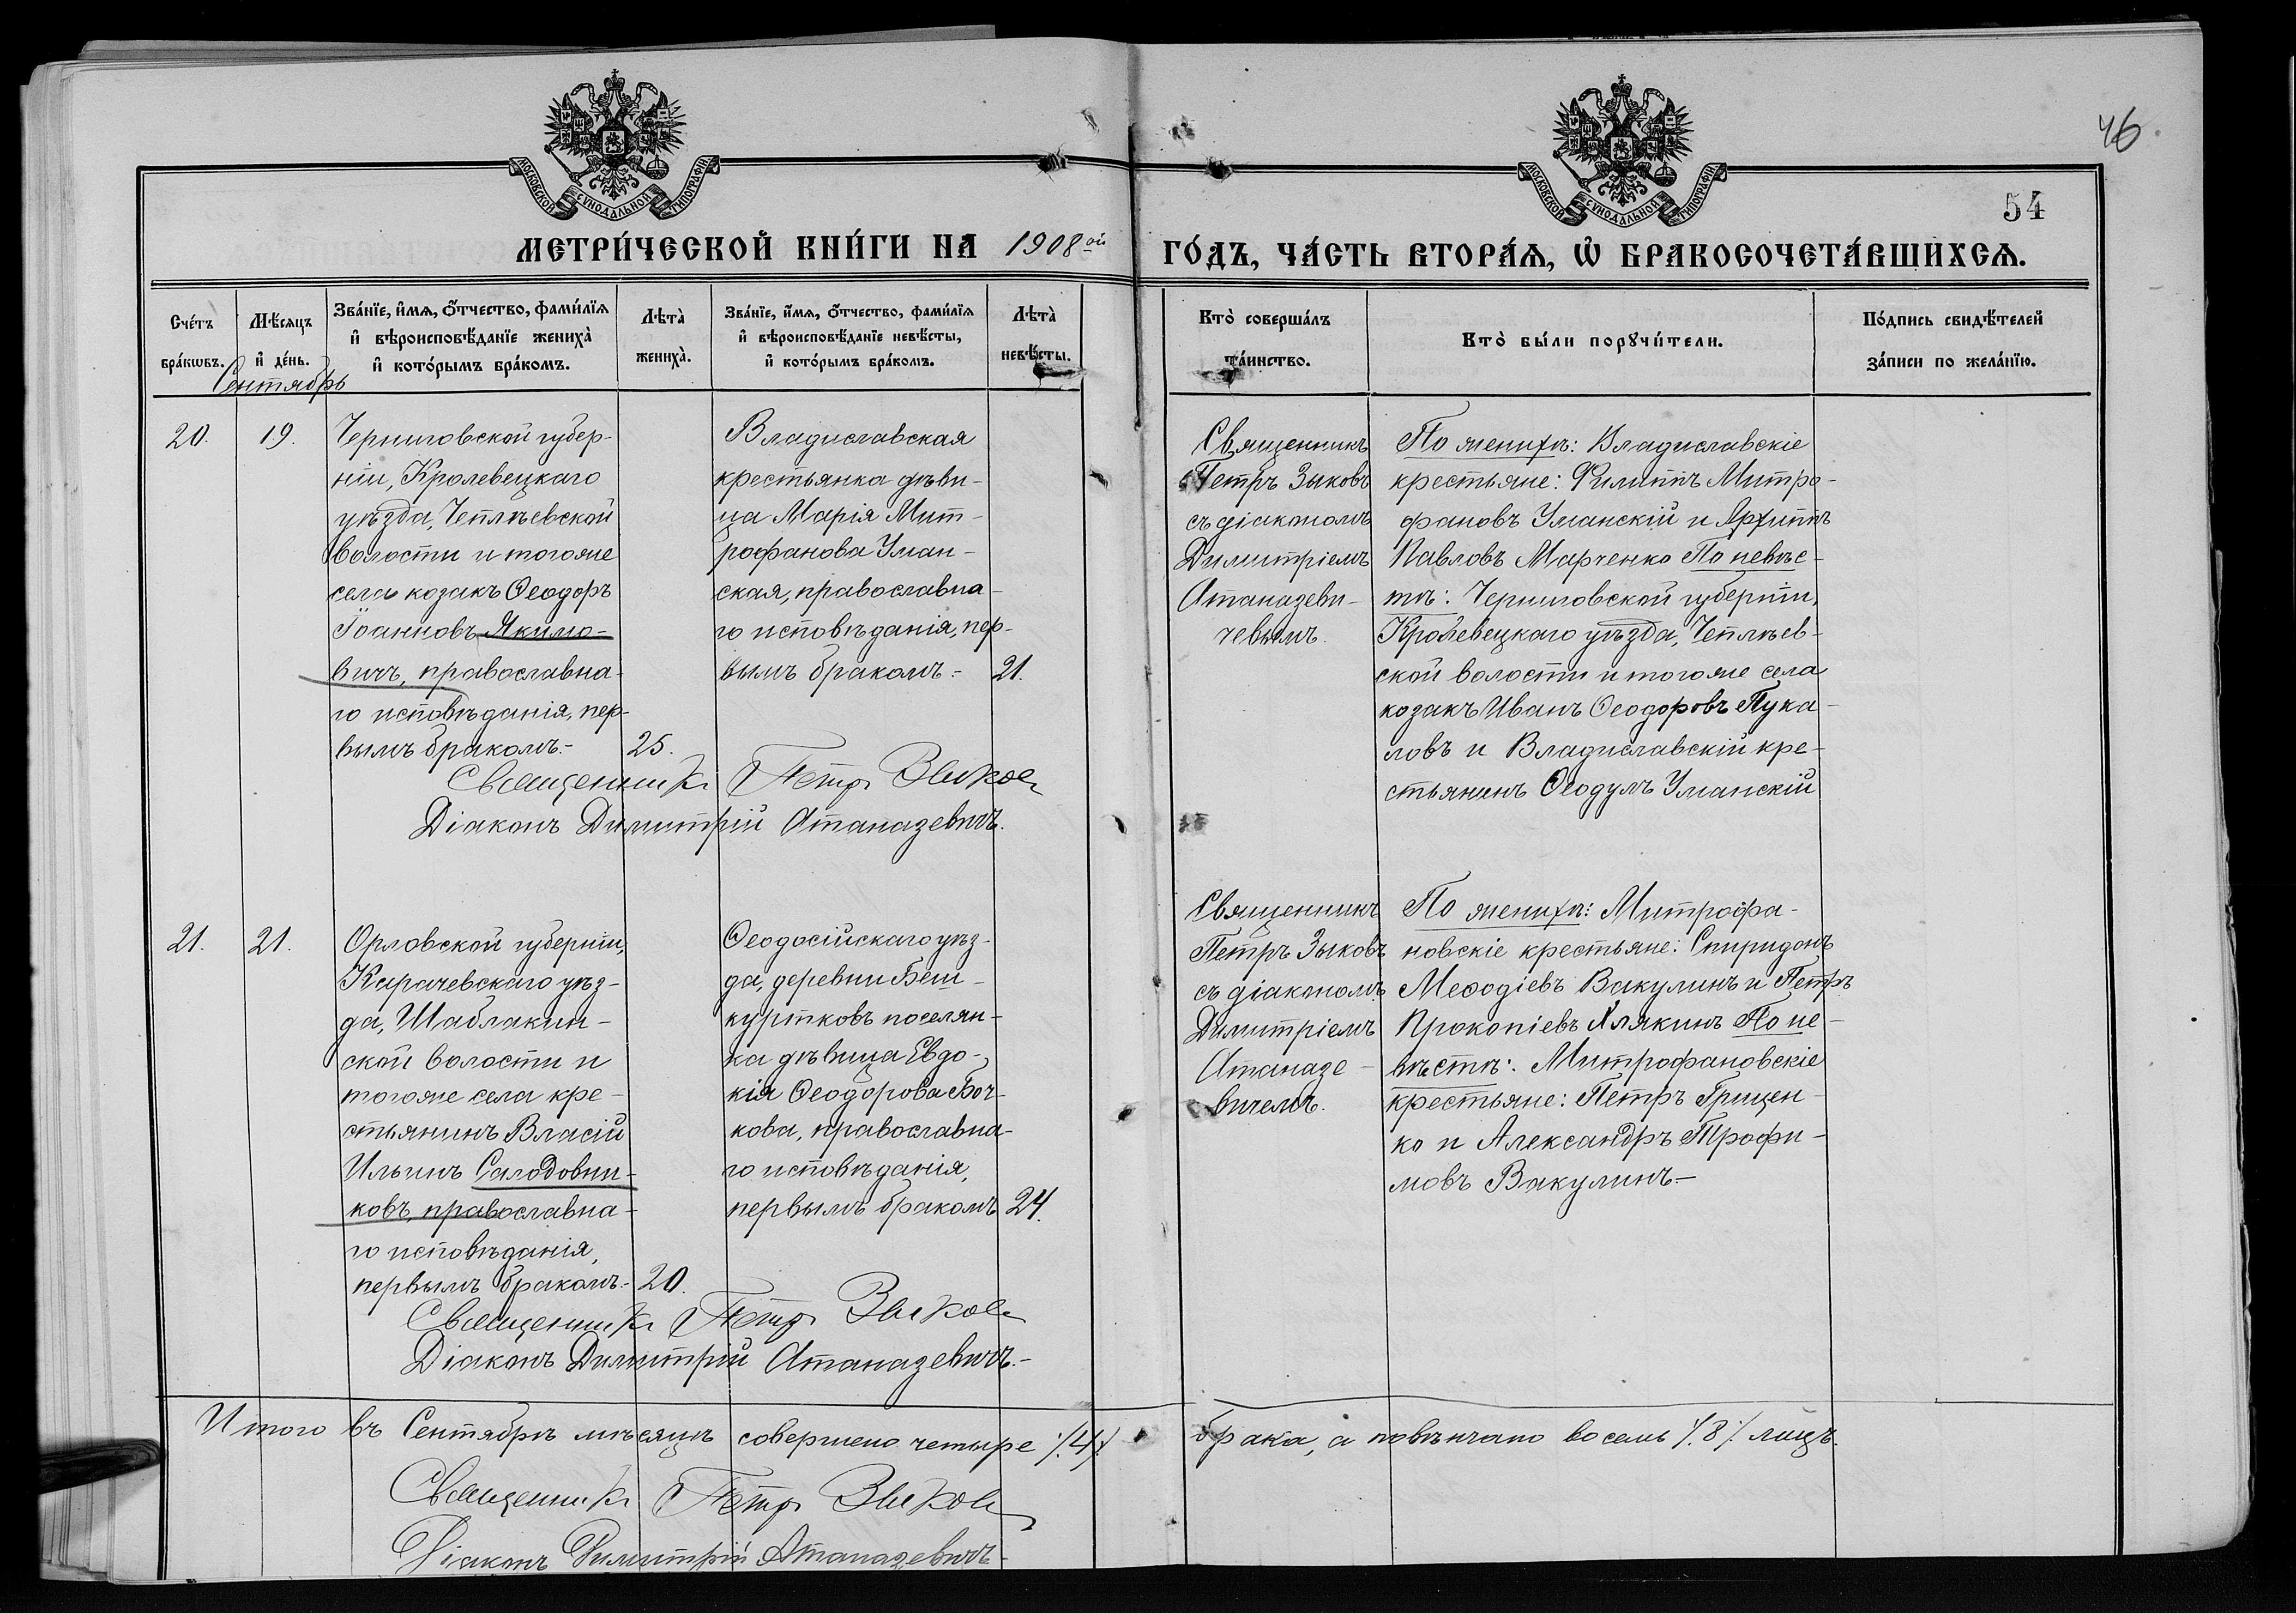 46
МОСКОВСКОЙ СУНОДАЛЬНОЙ ТИПОГРАФІИ
МОСКОВСКОЙ СУНОДАЛЬНОЙ ТИПОГРАФІИ
54
МЕТРИ́ЧЕСКОЙ КНИ́ГИ НА 1908ой ГО́ДЪ, ЧА́СТЬ ВТОРА́Ѧ, Ѡ҆ БРАКОСОЧЕТА́ВШИХСѦ.
Сче́тъ
бра́кѡвъ.
Мѣ́сяцъ
и҆ де́нь.
Зва́нїе, и҆́мѧ, ѻ҆́тчество, фами́лїѧ
и҆ вѣроисповѣ́данїе жениха̀
и҆ кото́рымъ бра́комъ.
Лѣта̀
жениха̀.
Зва́нїе, и҆́мѧ, ѻ҆́тчество, фами́лїѧ
и҆ вѣроисповѣ́данїе невѣ́сты,
и҆ кото́рымъ бра́комъ.
Лѣта̀
невѣ́сты.
Кто̀ соверша́лъ
та́инство.
Кто̀ бы́ли порꙋчи́тели.
По́дпись свидѣ́телей
за́писи по жела́нїю.
Сентябрь
20.
19.
Черниговской губер-
ніи, Кролевецкаго
уѣзда, Чеплѣевской
волости и тогоже
села козакъ Ѳеодоръ
Іоанновъ Якимо-
вичъ, православна-
го исповѣданія, пер-
вымъ бракомъ.-
25.
Владиславская
крестьянка дѣви-
ца Марія Мит-
рофанова Уман-
ская, православна-
го исповѣданія, пер-
вымъ бракомъ.-
21.
Священникъ Петръ Зыковъ
Діаконъ Димитрій Атаназевичъ.
Священникъ
Петръ Зыковъ
съ діакономъ
Димитріемъ
Атаназеви-
чевымъ.
По женихѣ: Владиславскіе
крестьяне: Филиппъ Митро-
фановъ Уманскій и Архиппъ
Павловъ Марченко По невѣс-
тѣ: Черниговской губерніи,
Кролевецкаго уѣзда, Чеплѣев-
ской волости и тогоже села
козакъ Иванъ Ѳеодоровъ Пука-
ловъ и Владиславскій кре-
стьянинъ Ѳеодулъ Уманскій
21.
21.
Орловской губерніи,
Карачевскаго уѣз-
да, Шаблакин-
ской волости и
тогоже села кре-
стьянинъ Власій
Ильинъ Салодовни-
ковъ, православна-
го исповѣданія,
первымъ бракомъ.-
20.
Ѳеодосійскаго уѣз-
да, деревни Беш-
куртковъ поселян-
ка дѣвица Евдо-
кія Ѳеодорова Боч-
кова, православна-
го исповѣданія,
первымъ бракомъ
24.
Священникъ Петръ Зыковъ
Діаконъ Димитрій Атаназевичъ.-
Священникъ
Петръ Зыковъ
съ діакономъ
Димитріемъ
Атаназе-
вичемъ.
По женихѣ: Митрофа-
новскіе крестьяне: Спиридонъ
Меѳодіевъ Вакулинъ и Петръ
Прокопіевъ Хлякинъ По не-
вѣстѣ: Митрофановскіе
крестьяне: Петръ Грицен-
ко и Александръ Трофи-
мовъ Вакулинъ.-
Итого въ Сентябрѣ мѣсяцѣ совершено четыре /.4/. брака, а повѣнчано восемь /.8/. лицъ.
Священникъ Петръ Зыковъ
Діаконъ Димитрій Атаназевичъ-